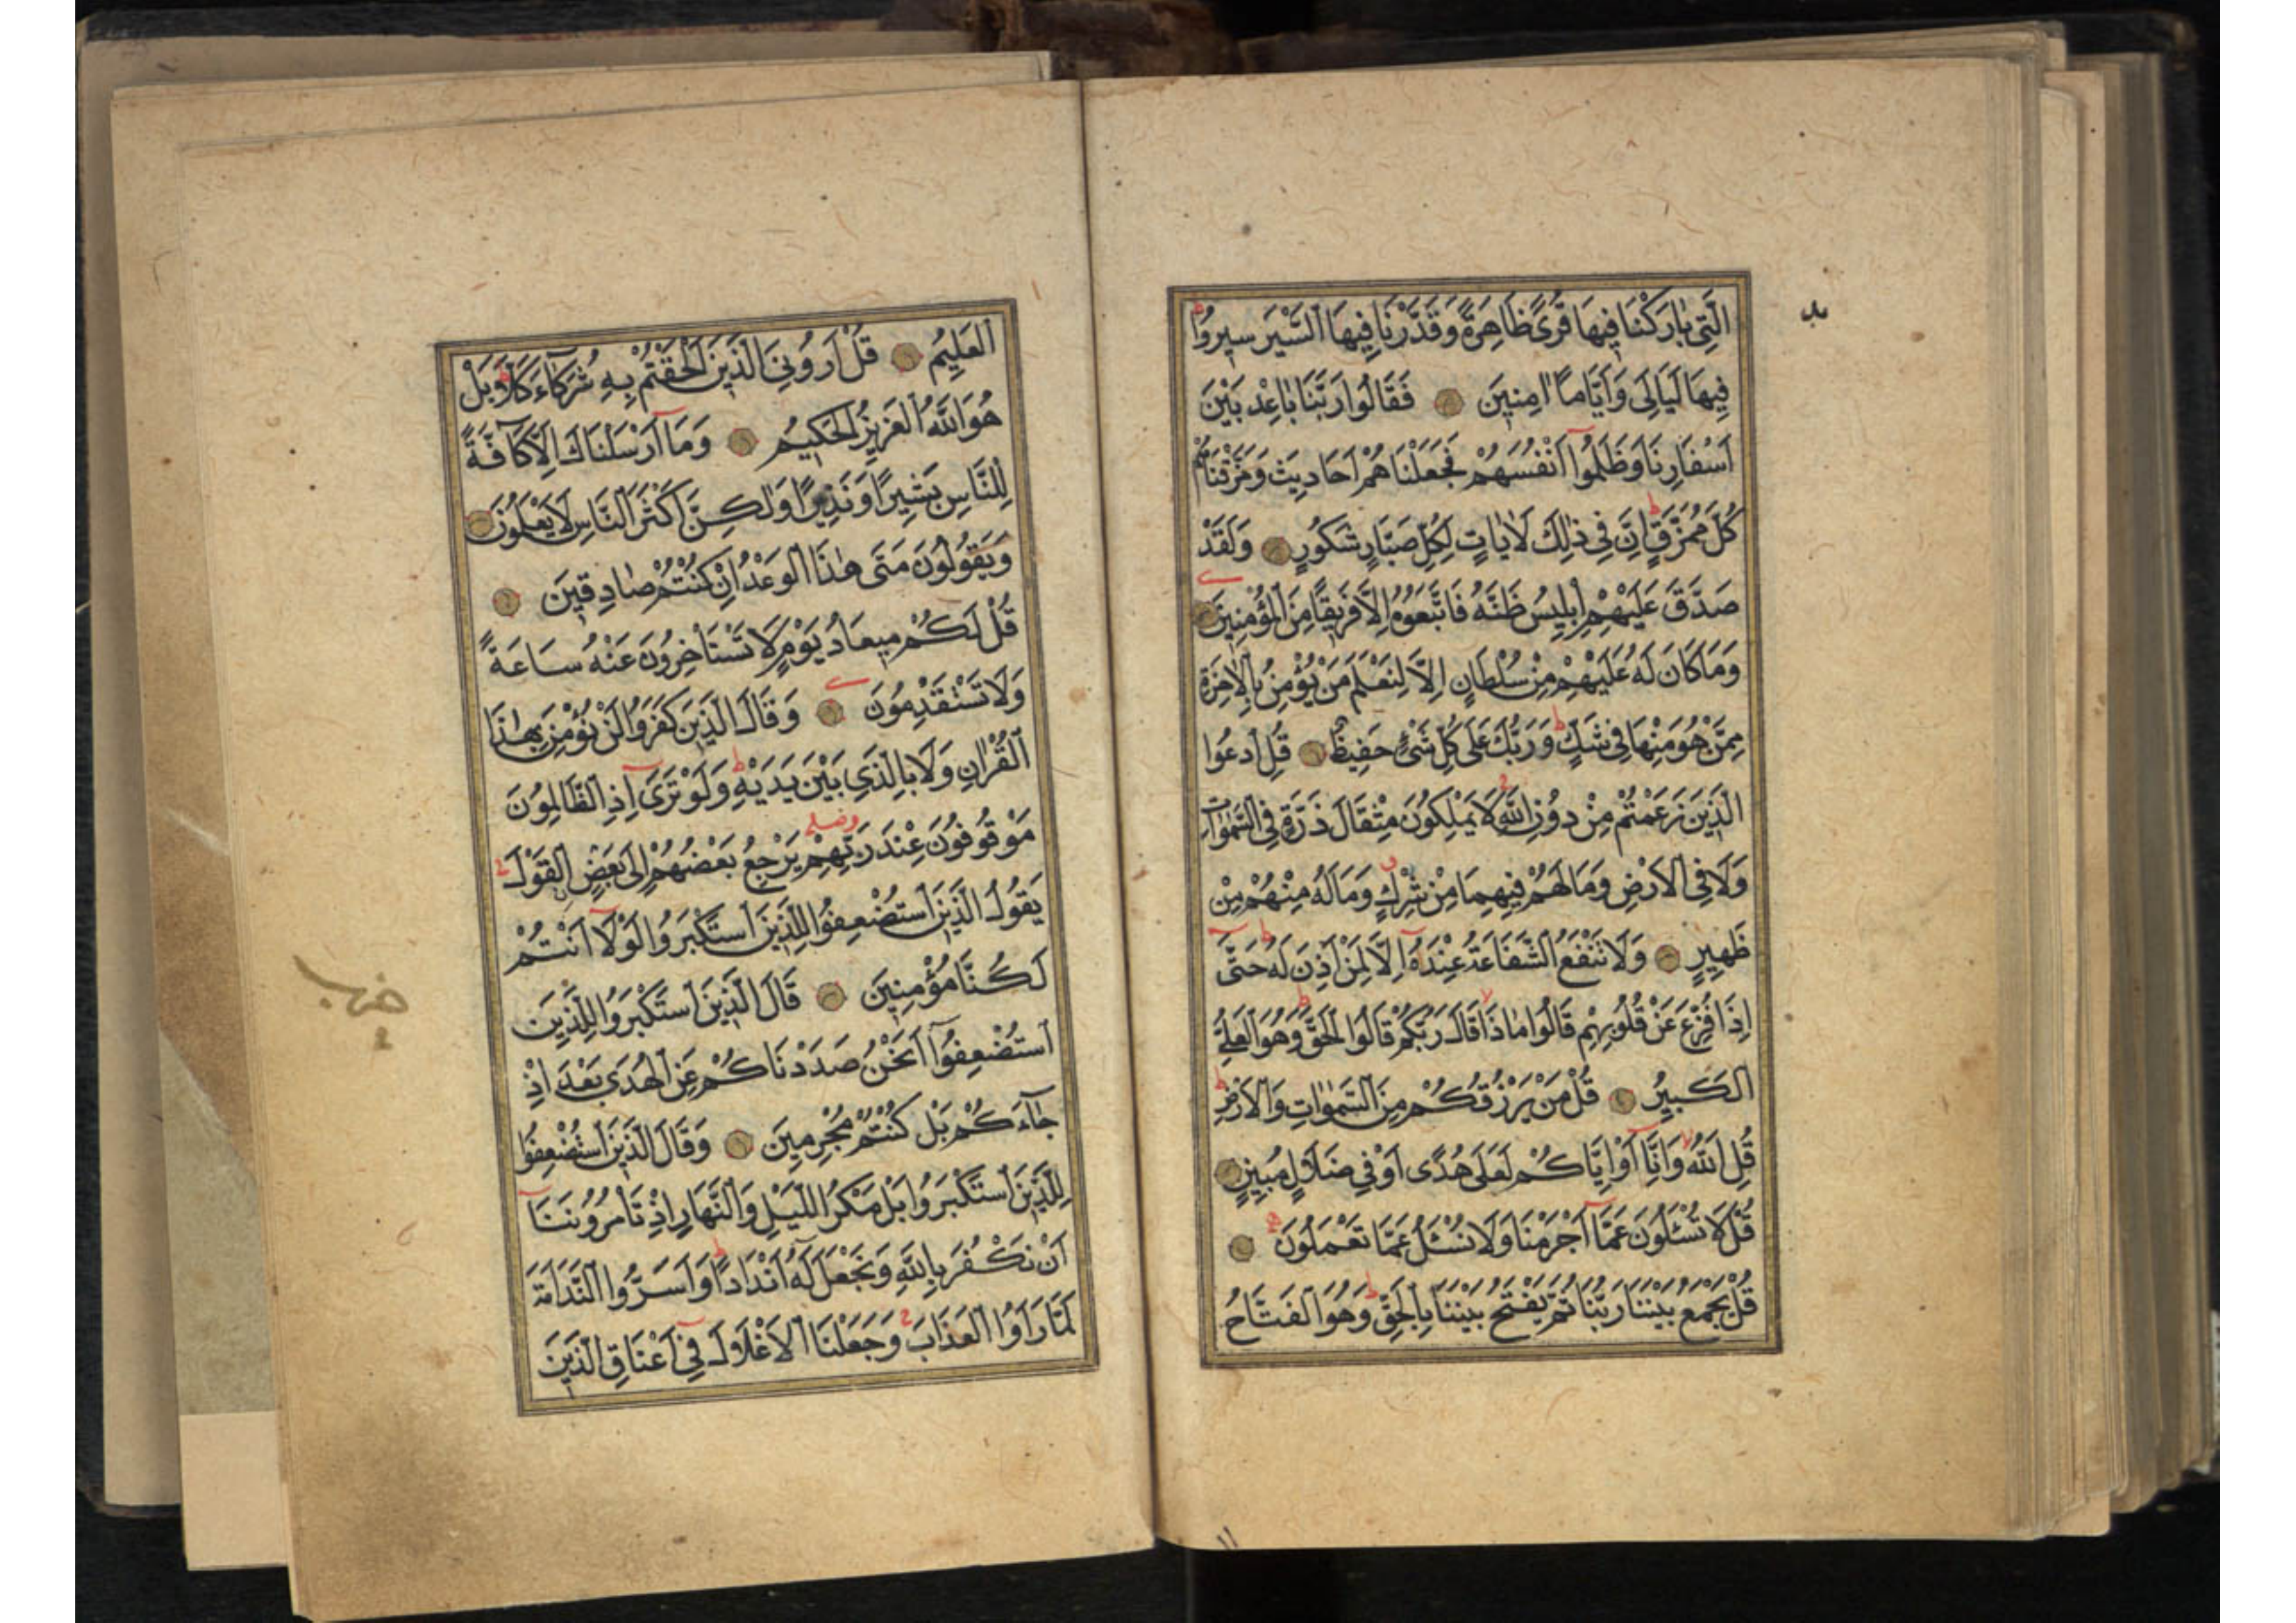 الَّتِي بَارَكْنَا فِيهَا قُرًى ظَاهِرَةً وَقَدَّرْنَا فِيهَا السَّيْرَ سِيرُوا
فِيهَا لَيَالِيَ وَأَيَّامًا اٰمِنِينَ فَقَالُوا رَبَّنَا بَاعِدْ بَيْنَ
اَسْفَارِنَا وَظَلَمُوا اَنْفُسَهُمْ فَجَعَلْنَاهُمْ اَحَادِيثَ وَمَزَّقْنَاهُمْ
كُلَّ مُمَزَّقٍ اِنَّ فِي ذٰلِكَ لَاٰيَاتٍ لِكُلِّ صَبَّارٍ شَكُورٍ وَلَقَدْ
صَدَّقَ عَلَيْهِمْ اِبْلِيسُ ظَنَّهُ فَاتَّبَعُوهُ اِلَّا فَرِيقًا مِنَ الْمُؤْمِنِينَ
وَمَا كَانَ لَهُ عَلَيْهِمْ مِنْ سُلْطَانٍ اِلَّا لِنَعْلَمَ مَنْ يُؤْمِنُ بِالْاٰخِرَةِ
مِمَّنْ هُوَ مِنْهَا فِي شَكٍّ وَرَبُّكَ عَلَى كُلِّ شَيْءٍ حَفِيظٌ قُلِ ادْعُوا
الَّذِينَ زَعَمْتُمْ مِنْ دُونِ اللّٰهِ لَا يَمْلِكُونَ مِثْقَالَ ذَرَّةٍ فِي السَّمٰوَاتِ
وَلَا فِي الْاَرْضِ وَمَا لَهُمْ فِيهِمَا مِنْ شِرْكٍ وَمَا لَهُ مِنْهُمْ مِنْ
ظَهِيرٍ وَلَا تَنْفَعُ الشَّفَاعَةُ عِنْدَهُ اِلَّا لِمَنْ اَذِنَ لَهُ حَتَّى
اِذَا فُزِّعَ عَنْ قُلُوبِهِمْ قَالُوا مَاذَا قَالَ رَبُّكُمْ قَالُوا الْحَقَّ وَهُوَ الْعَلِيُّ
الْكَبِيرُ قُلْ مَنْ يَرْزُقُكُمْ مِنَ السَّمٰوَاتِ وَالْاَرْضِ
قُلِ اللّٰهُ وَاِنَّا اَوْ اِيَّاكُمْ لَعَلَى هُدًى اَوْ فِي ضَلَالٍ مُبِينٍ
قُلْ لَا تُسْئَلُونَ عَمَّا اَجْرَمْنَا وَلَا نُسْئَلُ عَمَّا تَعْمَلُونَ
قُلْ يَجْمَعُ بَيْنَنَا رَبُّنَا ثُمَّ يَفْتَحُ بَيْنَنَا بِالْحَقِّ وَهُوَ الْفَتَّاحُ
الْعَلِيمُ قُلْ اَرُونِيَ الَّذِينَ اَلْحَقْتُمْ بِهِ شُرَكَاءَ كَلَّا بَلْ
هُوَ اللّٰهُ الْعَزِيزُ الْحَكِيمُ وَمَا اَرْسَلْنَاكَ اِلَّا كَافَّةً
لِلنَّاسِ بَشِيرًا وَنَذِيرًا وَلٰكِنَّ اَكْثَرَ النَّاسِ لَا يَعْلَمُونَ
وَيَقُولُونَ مَتَى هٰذَا الْوَعْدُ اِنْ كُنْتُمْ صَادِقِينَ
قُلْ لَكُمْ مِيعَادُ يَوْمٍ لَا تَسْتَأْخِرُونَ عَنْهُ سَاعَةً
وَلَا تَسْتَقْدِمُونَ وَقَالَ الَّذِينَ كَفَرُوا لَنْ نُؤْمِنَ بِهٰذَا
الْقُرْاٰنِ وَلَا بِالَّذِي بَيْنَ يَدَيْهِ وَلَوْ تَرَى اِذِ الظَّالِمُونَ
مَوْقُوفُونَ عِنْدَ رَبِّهِمْ يَرْجِعُ بَعْضُهُمْ اِلَى بَعْضٍ الْقَوْلَ
يَقُولُ الَّذِينَ اسْتُضْعِفُوا لِلَّذِينَ اسْتَكْبَرُوا لَوْلَا اَنْتُمْ
لَكُنَّا مُؤْمِنِينَ قَالَ الَّذِينَ اسْتَكْبَرُوا لِلَّذِينَ
اسْتُضْعِفُوا اَنَحْنُ صَدَدْنَاكُمْ عَنِ الْهُدَى بَعْدَ اِذْ
جَاءَكُمْ بَلْ كُنْتُمْ مُجْرِمِينَ وَقَالَ الَّذِينَ اسْتُضْعِفُوا
لِلَّذِينَ اسْتَكْبَرُوا بَلْ مَكْرُ اللَّيْلِ وَالنَّهَارِ اِذْ تَأْمُرُونَنَا
اَنْ نَكْفُرَ بِاللّٰهِ وَنَجْعَلَ لَهُ اَنْدَادًا وَاَسَرُّوا النَّدَامَةَ
لَمَّا رَاَوُا الْعَذَابَ وَجَعَلْنَا الْاَغْلَالَ فِي اَعْنَاقِ الَّذِينَ
حزب